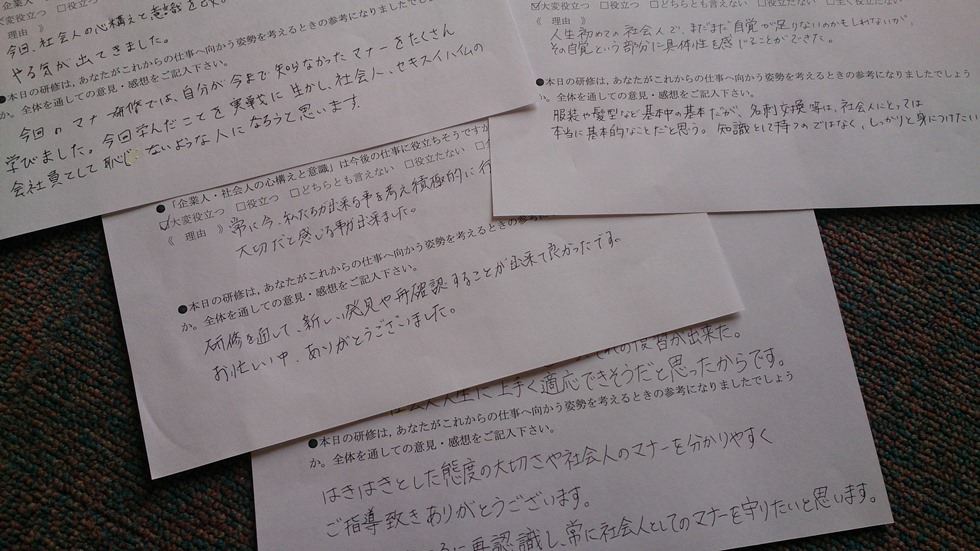 今日、社会人の心構えと意識を
やる気が出てきました。
●本日の研修は、あなたがこれからの仕事へ向かう姿勢を考えるときの参考になりましたでしょ
か。全体を通しての意見・感想をご記入下さい。
今回のマナー研修では、自分が今まで知らなかったマナーをたくさん
学びました。今回学んだことを実戦に生かし、社会人、セキスイハイムの
会社員として恥じないような人になろうと思います。
大変役立つ □役立つ □どちらとも言えない □役立たない □全く役立たない
《 理由 》
人生初めての社会人で、まだまだ自覚が足りないのかもしれないが、
その自覚という部分に具体性も感じることができた。
●本日の研修は、あなたがこれからの仕事へ向かう姿勢を考えるときの参考になりましたでしょう
か。全体を通しての意見・感想をご記入下さい。
服装や髪型など基本中の基本だが、名刺交換等は、社会人にとっては
本当に基本的なことだと思う。知識として持つのではなく、しっかりと身につけたい
●「企業人・社会人の心構えと意識」は今後の仕事に役立ちそうですか
大変役立つ □役立つ □どちらとも言えない □役立たない
《 理由 》
常に今、私たちが出来る事を考え積極的に行
大切だと感じる事が出来ました。
●本日の研修は、あなたがこれからの仕事へ向かう姿勢を考えるときの参考に
か。全体を通しての意見・感想をご記入下さい。
研修を通して、新しい発見や再確認することが出来て良かったです。
お忙しい中、ありがとうございました。
社会人生に上手く適応できそうだと思ったからです。
●本日の研修は、あなたがこれからの仕事へ向かう姿勢を考えるときの参考になりましたでしょう
か。全体を通しての意見・感想をご記入下さい。
はきはきとした態度の大切さや社会人のマナーを分かりやすく
ご指導致きありがとうございます。
再認識し、常に社会人としてのマナーを守りたいと思います。